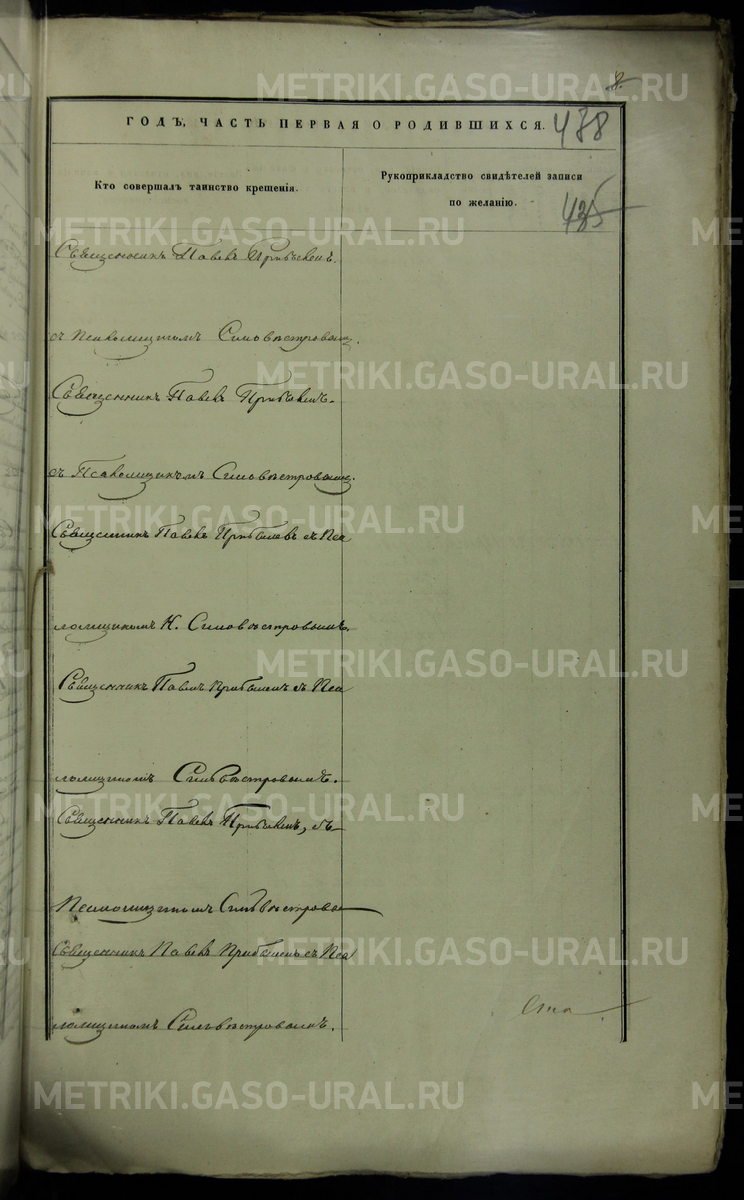 8.
ГОДЪ, ЧАСТЬ ПЕРВАЯ О РОДИВШИХСЯ. 438
Кто совершалъ таинство крещенія.
Рукоприкладство свидѣтелей записи
по желанію.
435
Священникъ Павелъ
съ Псаломщикомъ Сильвестровымъ.
Священникъ Павелъ
съ Псаломщикомъ Сильвестровымъ.
Священникъ Павелъ съ Пса
ломщикомъ Н. Сильвестровымъ.
Священникъ Павелъ съ Пса
ломщикомъ Сильвестровымъ.
Священникъ Павелъ съ
Псаломщикомъ
Священникъ Павелъ съ Пса
ломщикомъ Сильвестровымъ.
METRIKI.GASO-URAL.RU